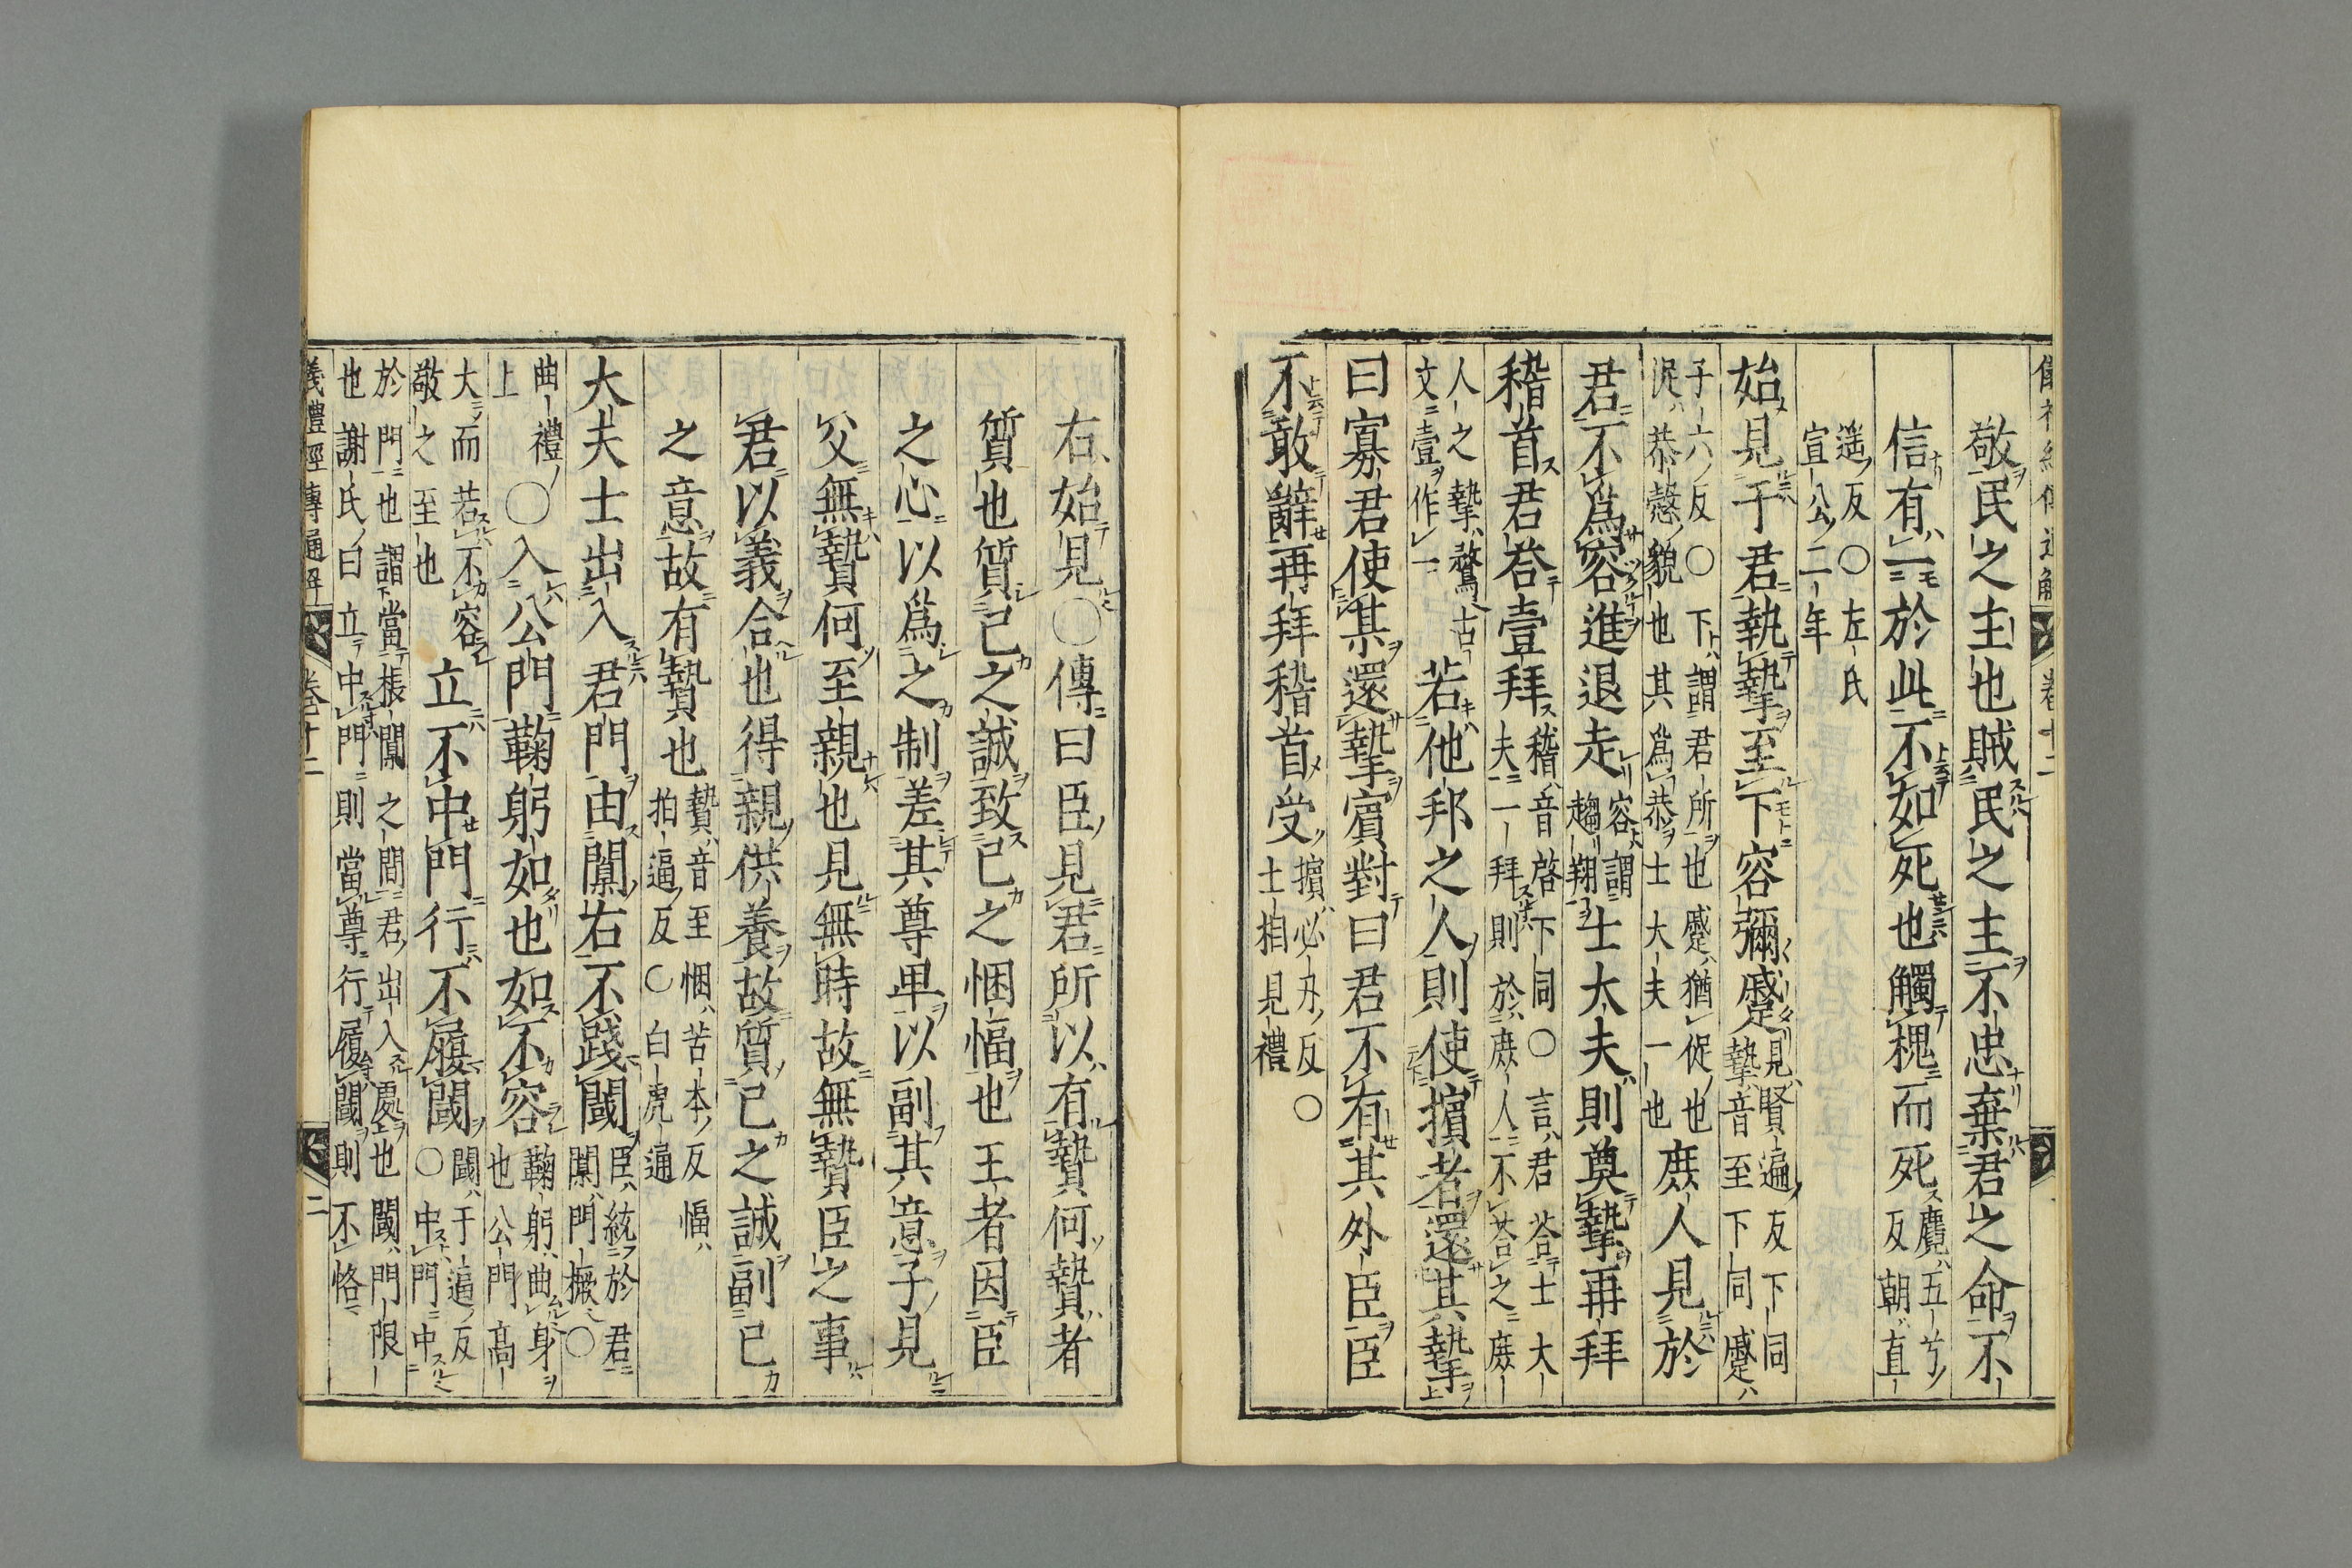 卷十二
敬民之主也賊民之主不忠棄君之命不
信有一於此不如死也觸槐而死麑五兮
反朝直
遥反○左氏
宣公二年
始見于君執摯至下容彌蹙見賢遍反下同
摯音至下同蹙
子六反○下謂君所也蹙猶促也
促恭慤貌也其爲恭士大夫一也庶人見於
君不爲容進退走容謂
趨翔士大夫則奠摯再拜
稽首君荅壹拜稽音啓下同○言君荅士大
夫一拜則於庶人不荅之庶
人之摯鶩古
文壹作一若他邦之人則使擯者還其摯
曰寡君使某還摯賓對曰君不有其外臣臣
不敢辭再拜稽首受擯必刃反○
士相見禮
右始見○傳曰臣見君所以有贄何贄者
質也質己之誠致己之悃愊也王者因臣
之心以爲之制差其尊卑以副其意子見
父無贄何至親也見無時故無贄臣之事
君以義合也得親供養故質己之誠副己
之意故有贄也贄音至悃苦本反愊
拍逼反○白虎通
大夫士出入君門由闑右不踐閾臣統於君
闑門橛○
曲禮
上○入公門鞠躬如也如不容鞠躬曲身
也公門高
大而若不容
敬之至也立不中門行不履閾閾于逼反
○中門中
於門也謂當棖闑之間君出入處也閾門限
也謝氏曰立中門則當尊行履閾則不恪
儀禮經傳通解 卷十二 二